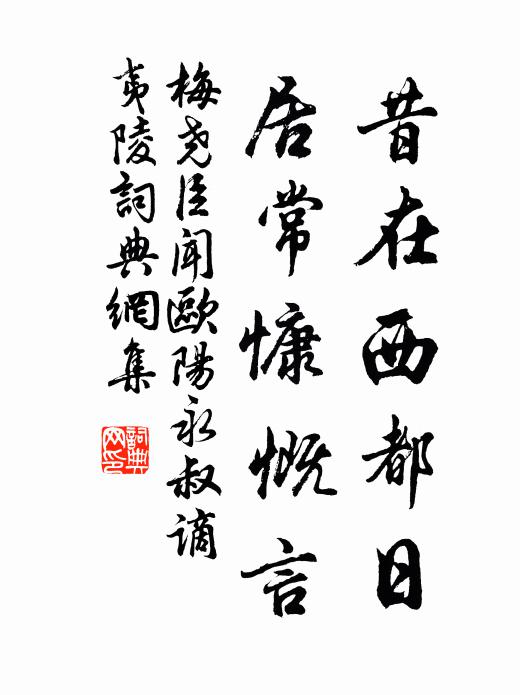 昔在西都日
居常慷慨言
梅尧臣闻歐陽永叔谪
夷陵詞典網集
詞典网印